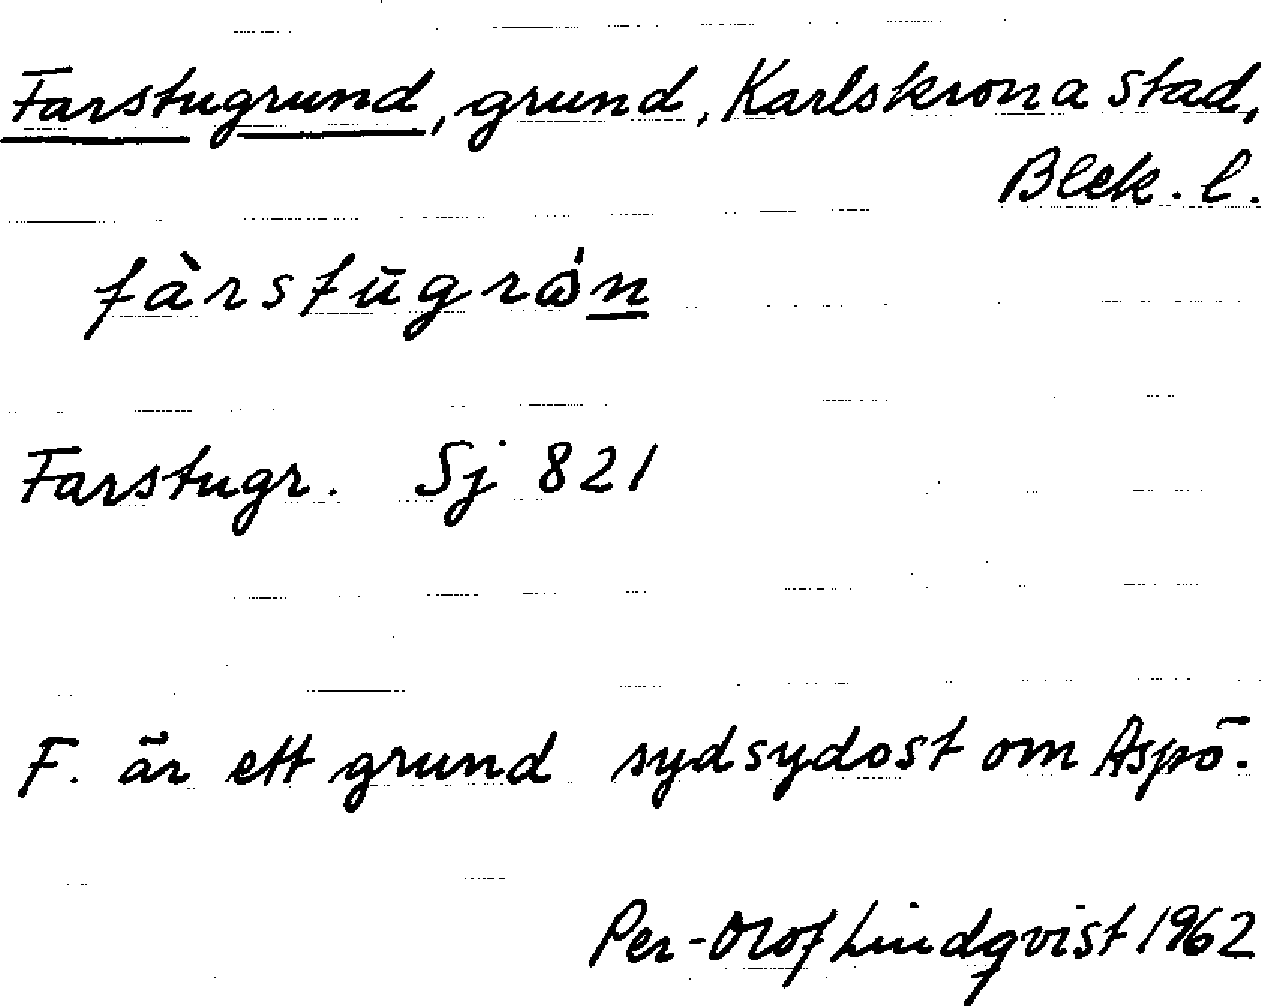 Farstugrund, grund, Karlskrona stad,
Blek. l.
fàrstūgrón
Farstugr. Sj 821
F. är ett grund sydsydost om Aspö.
Per-Olof Lindqvist 1962